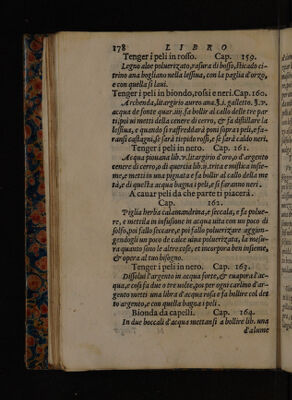 178 LIBRO
Tenger i peli in rosso. Cap. 159.
Legno aloe poluerizato, rasura di bosso, sticado ci-
trino ana bogliano nella lessiua, con la paglia d'orzo,
e con quella si laui.
Tenger i peli in biondo, rossi e neri. Cap. 160.
Archenda, litargirio aureo ana. ℥.i. galletto. ℥.v.
acqua de fonte quar. iiij. fa bollir al callo delle tre par
ti, poi vi metti della cenere di cerro, & fa distillar la
lessiua, e quando si raffreddarà poni sopra i peli, e fa-
ransi castagni, se sarà tiepido rossi, e se sarà caldo neri.
Tenger i peli in nero. Cap. 161.
Acqua piouana lib. v. litargirio d'oro, o d'argento
cenere di cerro, o di quercia lib. ii. trita e mistica insie-
me, e metti in una pignata e fa bollir al callo della me
tà, e di questa acqua bagna i peli, e si faranno neri.
A cauar peli da che parte ti piacerà.
Cap. 162.
Piglia herba calamandrina, e seccala, e fa poluer-
re, e mettila in infusione in acqua uita con un poco di
solfo, poi fallo seccare, e poi fallo poluerizare aggiun-
gendogli un poco de calce uiua poluerizata, la misu-
ra quanto sono le altre cose, et incorpora ben insieme,
& opera al tuo bisogno.
Tenger i peli in nero. Cap. 163.
Dissolui l'argento in acqua forte, & euapora l'ac-
qua, e così fa due o tre uolte, poi per ogni carlino d'ar-
gento metti una libra d'acqua rosa e fa bollire col det
to argento, e con quella bagna i peli.
Bionda da capelli. Cap. 164.
In due boccali d'acqua mettansi a bollire lib. una
d'alume